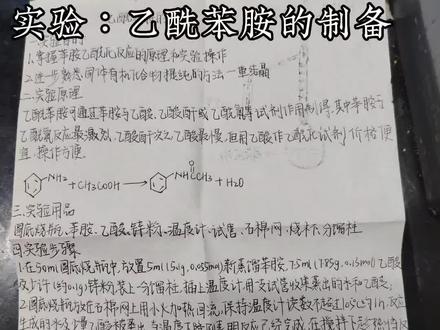 实验：乙酰苯胺的制备
一.实验目的
1.掌握苯胺乙酰化反应的原理和实验操作
2.进一步熟悉固体有机化合物提纯的方法—重结晶
二.实验原理
乙酰苯胺可通过苯胺与乙酸、乙酸酐或乙酰氯等试剂作用制得,其中苯胺与
乙酰氯反应最激烈,乙酸酐次之,乙酸最慢,但用乙酸作乙酰化试剂价格便
宜,操作方便.
NH2 + CH3COOH → NHCCH3 + H2O
O
三.实验用品
圆底烧瓶、苯胺、乙酸、锌粉、温度计、试管、石棉网、烧杯、分馏柱
四.实验步骤
1.在50ml圆底烧瓶中,放置5ml(5.1g,0.055mol)新蒸馏苯胺、7.5ml(7.85g,0.13mol)乙酸
及少许(约0.1g)锌粉,装上分馏柱,插上温度计,用支试管收集蒸出的水和乙酸;
2.圆底烧瓶放在石棉网上用小火加热回流,保持温度计读数不超105℃约1h.反应
生成的水及少量乙酸被蒸出,当温度下降则表明反应已经完成,在搅拌下趁热倒入